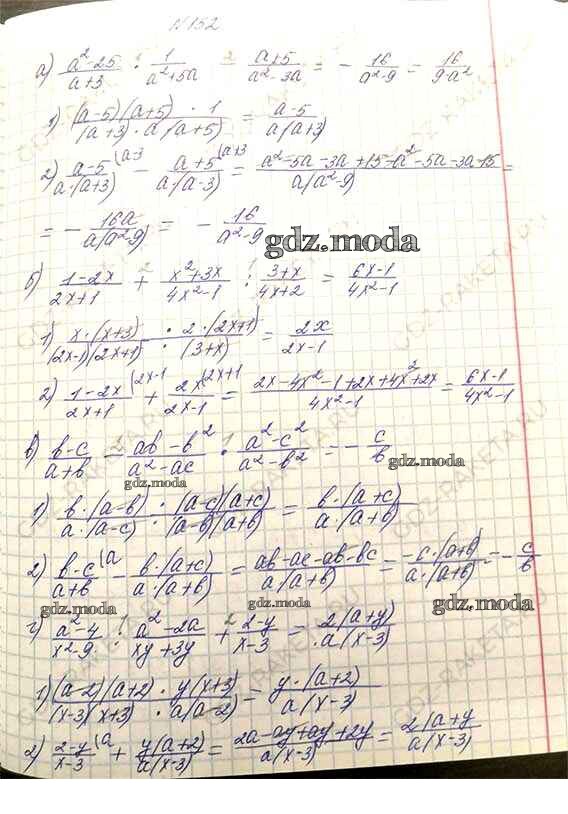 N 152
а) (a²-25)/(a+3) · 1/(a²+5a) - (a+5)/(a²-3a) = - 16/(a²-9) = 16/(9-a²)
1) ((a-5)(a+5) · 1)/((a+3) · a(a+5)) = (a-5)/(a(a+3))
2) (a-5)/(a·(a+3)) (a-3 - (a+5)/(a·(a-3)) (a+3 = (a²-5a-3a+15-a²-5a-3a-15)/(a(a²-9)) =
= - 16a/(a(a²-9)) = - 16/(a²-9)
gdz.moda
б) (1-2x)/(2x+1) + (x²+3x)/(4x²-1) : (3+x)/(4x+2) = (6x-1)/(4x²-1)
1) (x·(x+3) · 2·(2x+1))/((2x-1)(2x+1) · (3+x)) = 2x/(2x-1)
2) (1-2x)/(2x+1) (2x-1 + 2x/(2x-1) (2x+1 = (2x-4x²-1+2x+4x²+2x)/(4x²-1) = (6x-1)/(4x²-1)
в) (b-c)/(a+b) - (ab-b²)/(a²-ac) · (a²-c²)/(a²-b²) = - c/b
gdz.moda
gdz.moda
1) (b·(a-b) · (a-c)(a+c))/(a·(a-c) · (a-b)(a+b)) = (b·(a+c))/(a·(a+b))
2) (b-c)/(a+b) (a - (b·(a+c))/(a·(a+b)) = (ab-ac-ab-bc)/(a(a+b)) = (-c·(a+b))/(a·(a+b)) = - c/b
gdz.moda gdz.moda gdz.moda
г) (a²-4)/(x²-9) : (a²-2a)/(xy+3y) + (2-y)/(x-3) = (2(a+y))/(a(x-3))
1) ((a-2)(a+2) · y(x+3))/((x-3)(x+3) · a(a-2)) = (y·(a+2))/(a(x-3))
2) (2-y)/(x-3) (a + (y(a+2))/(a(x-3)) = (2a-ay+ay+2y)/(a(x-3)) = (2(a+y))/(a(x-3))